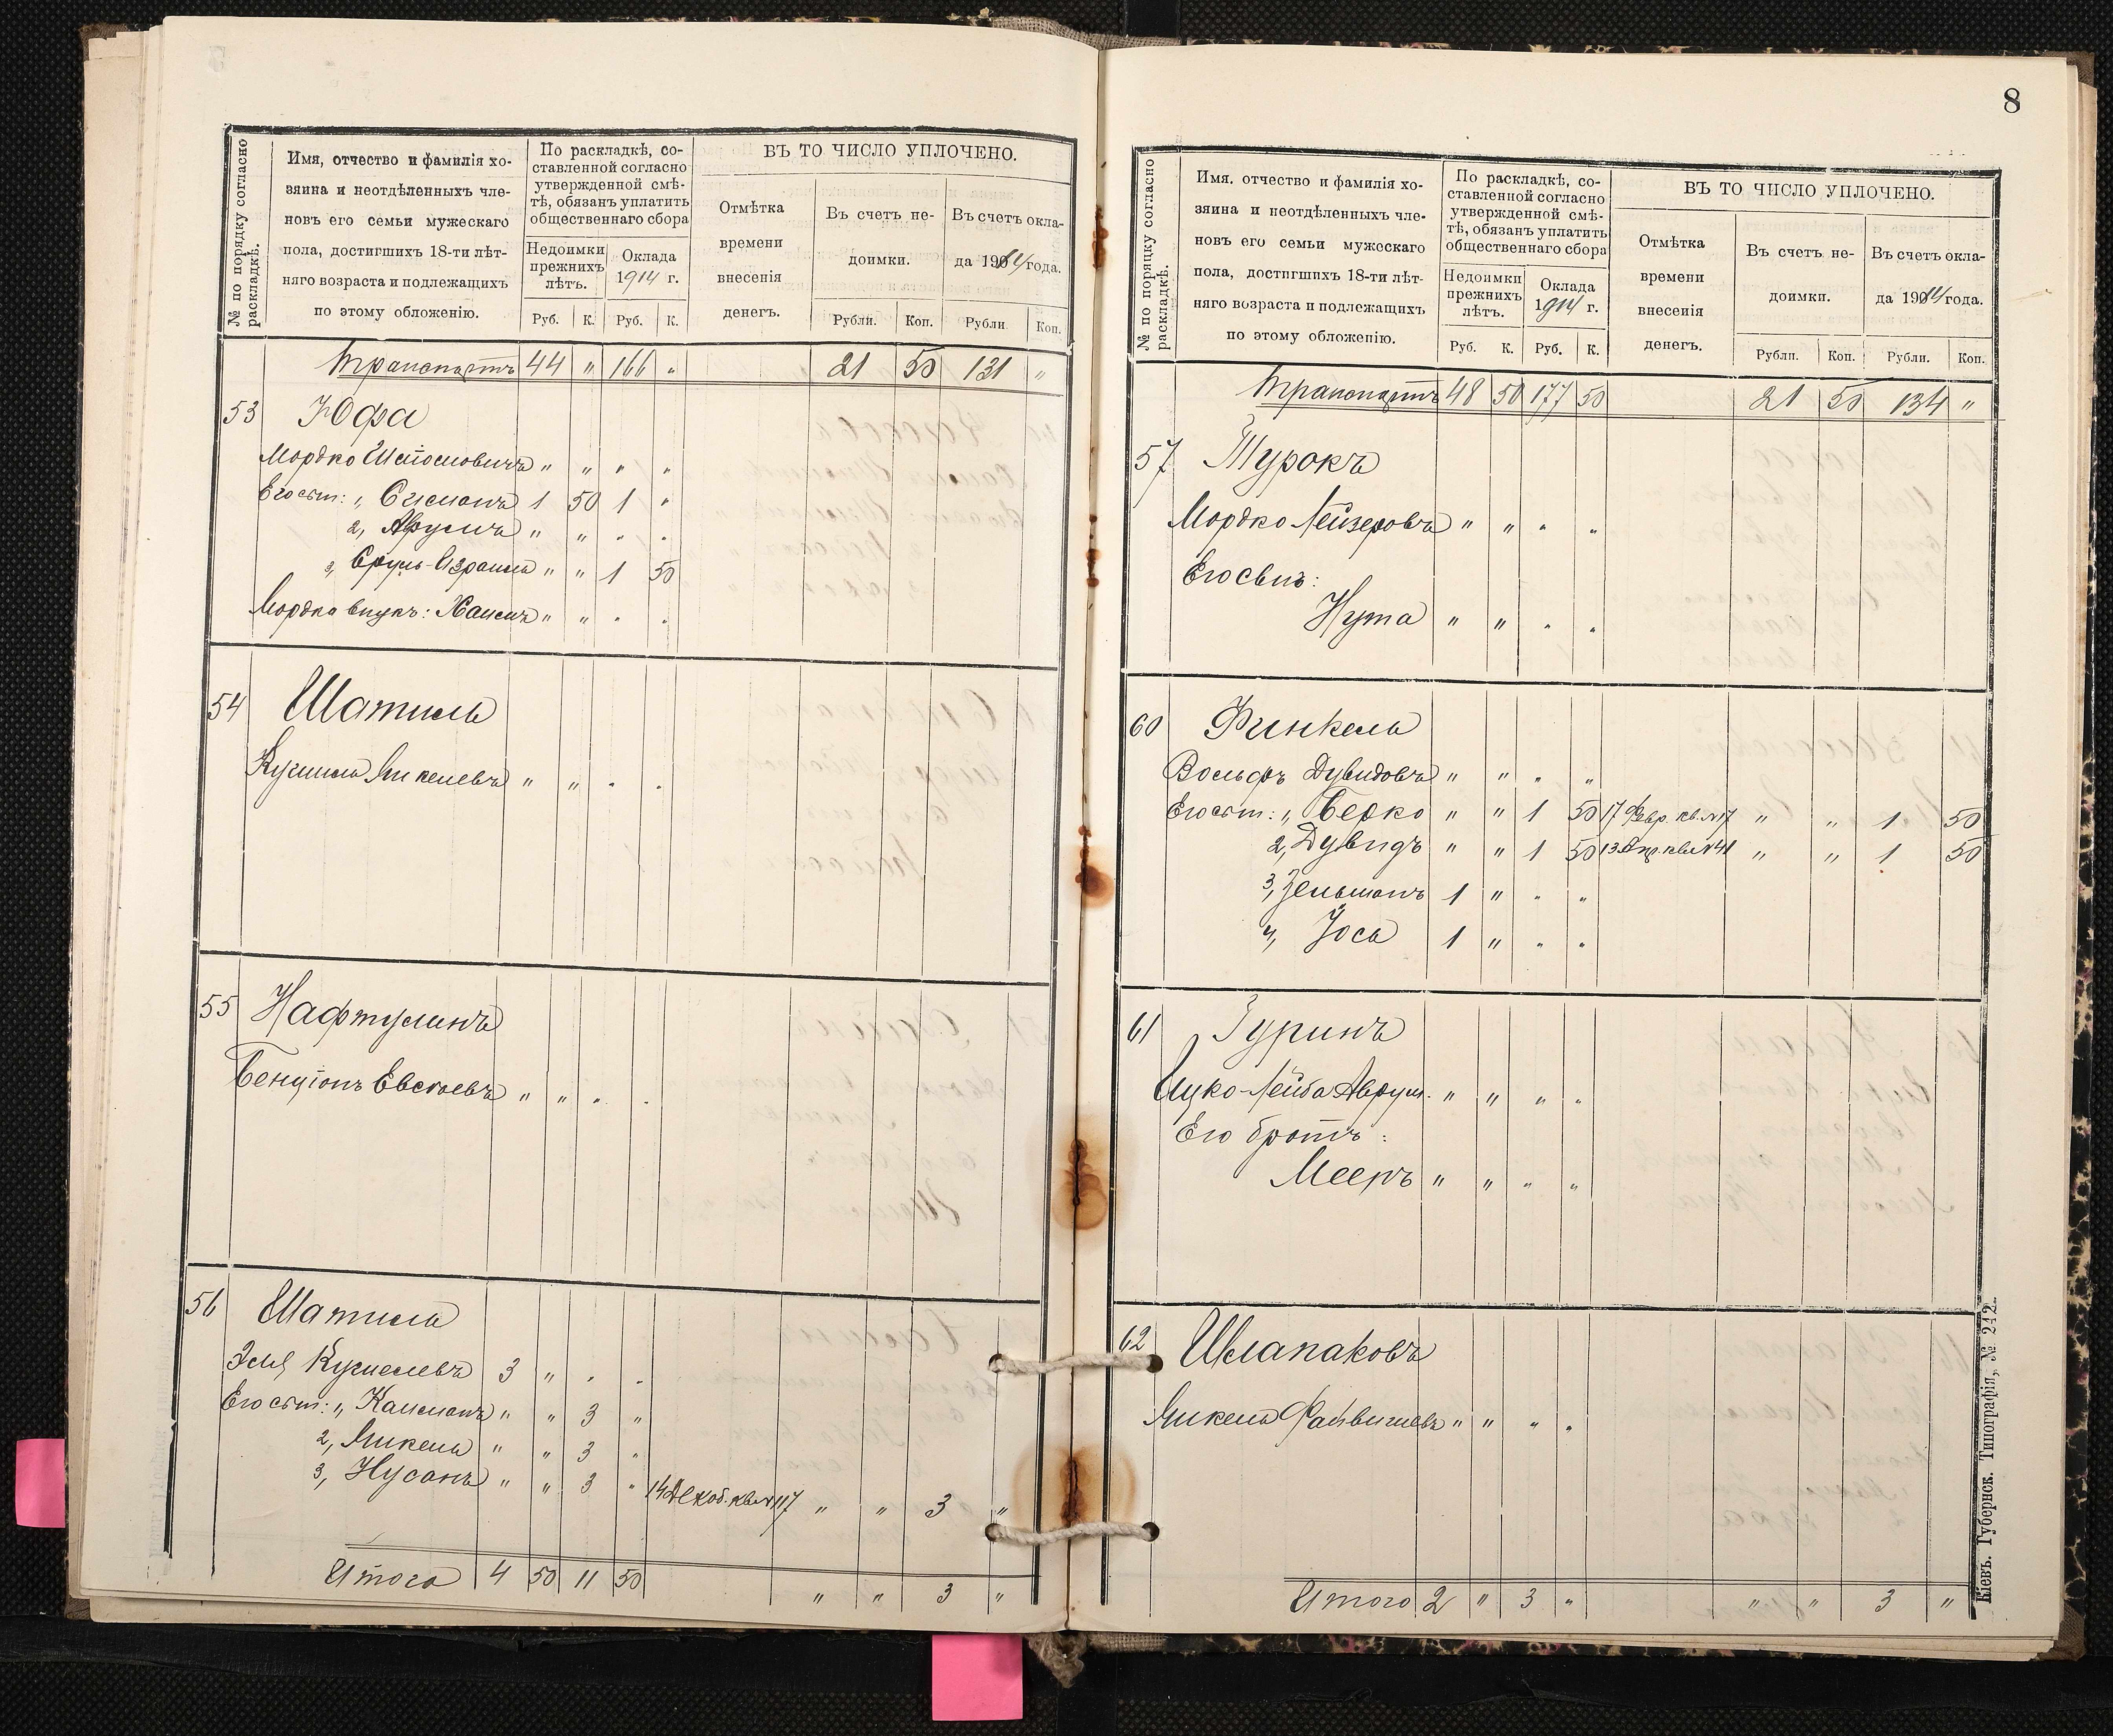 № по порядку согласно раскладкѣ.
Имя, отчество и фамилія хо-
зяина и неотдѣленныхъ чле-
новъ его семьи мужескаго
пола, достигшихъ 18-ти лѣт-
няго возраста и подлежащихъ
по этому обложенію.
По раскладкѣ, со-
ставленной согласно
утвержденной смѣ-
тѣ, обязанъ уплатить
общественнаго сбора
Недоимки
прежнихъ
лѣтъ.
Оклада
1914 г.
Руб. К. Руб. К.
ВЪ ТО ЧИСЛО УПЛОЧЕНО.
Отмѣтка
времени
внесенія
денегъ.
Въ счетъ не-
доимки.
Въ счетъ окла-
да 1914 года.
Рубли. Коп. Рубли Коп.
Транспортъ 44 " 166 " 21 50 131 "
53 Юфа
Мордко " " " "
Его сын: 1, Сисманъ 1 50 1 "
2, Аврумъ " " " "
3, Сруль-Израиль " " 1 50
Мордка внукъ: Хаимъ " " " "
54 Шатиль
Кушиль Янкелевъ " " " "
55 Нафтулинъ
Бенціонъ Евсѣевъ " " " "
56 Шатиль
Эля 3 " " "
Его сын: 1, Калманъ " " 3 "
2, Янкель " " 3 "
3, Нусанъ " " 3 " 14 Декаб. кв. №117 " " 3 "
Итого 4 50 11 50 " " 3 "
8
№ по поряцку согласно раскладкѣ.
Имя. отчество и фамилія хо-
зяина и неотдѣленныхъ чле-
новъ его семьи мужескаго
пола, достигшихъ 18-ти лѣт-
няго возраста и подлежащихъ
по этому обложенію.
По раскладкѣ, со-
ставленной согласно
утвержденной смѣ-
тѣ, обязанъ уплатить
общественнаго сбора
Недоимки
прежнихъ
лѣтъ.
Оклада
1914 г.
Руб. К. Руб. К.
ВЪ ТО ЧИСЛО УПЛОЧЕНО.
Отмѣтка
времени
внесенія
денегъ.
Въ счетъ не-
доимки.
Въ счетъ окла-
да 1914 года.
Рубли. Коп. Рубли. Коп.
Транспортъ 48 50 177 50 21 50 134 "
57 Турокъ
Мордко Лейзеровъ " " " "
Его сынъ:
Нута " " " "
60 Финкель
Вольфъ Дувидовъ " " " "
Его сын: 1, Берко " " 1 50 17 Февр. кв. №17 " " 1 50
2, Дувидъ " " 1 50 13 Апр. кв. №41 " " 1 50
3, Зельманъ 1 " " "
4, Іоса 1 " " "
61 Гуринъ
Ицко-Лейба Аврум. " " " "
Его братъ:
Мееръ " " " "
62 Шлапаковъ
Янкель Файвишевъ " " " "
Итого 2 " 3 " " " 3 "
Кіевъ. Губернск. Типографія, № 242.